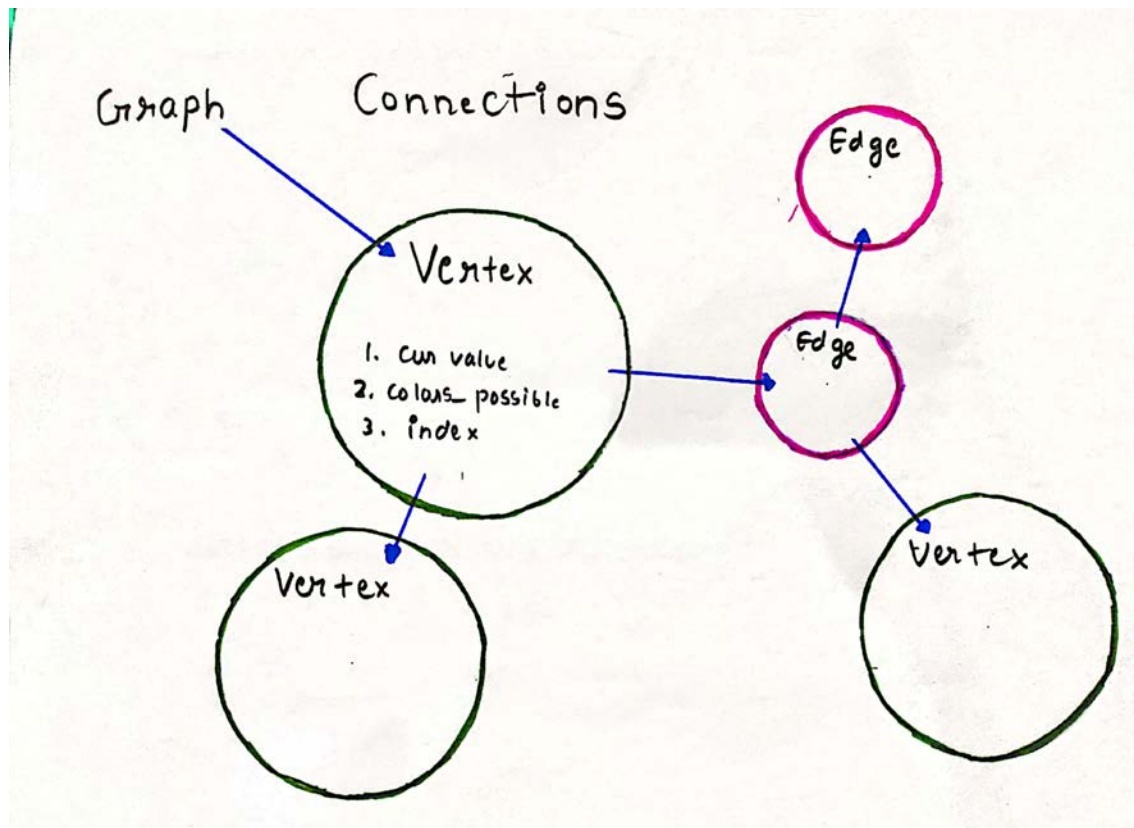 Graph
Connections
Edge
Vertex
1. cur value
2. colors_ possible
3. index
Edge
Vertex
Vertex